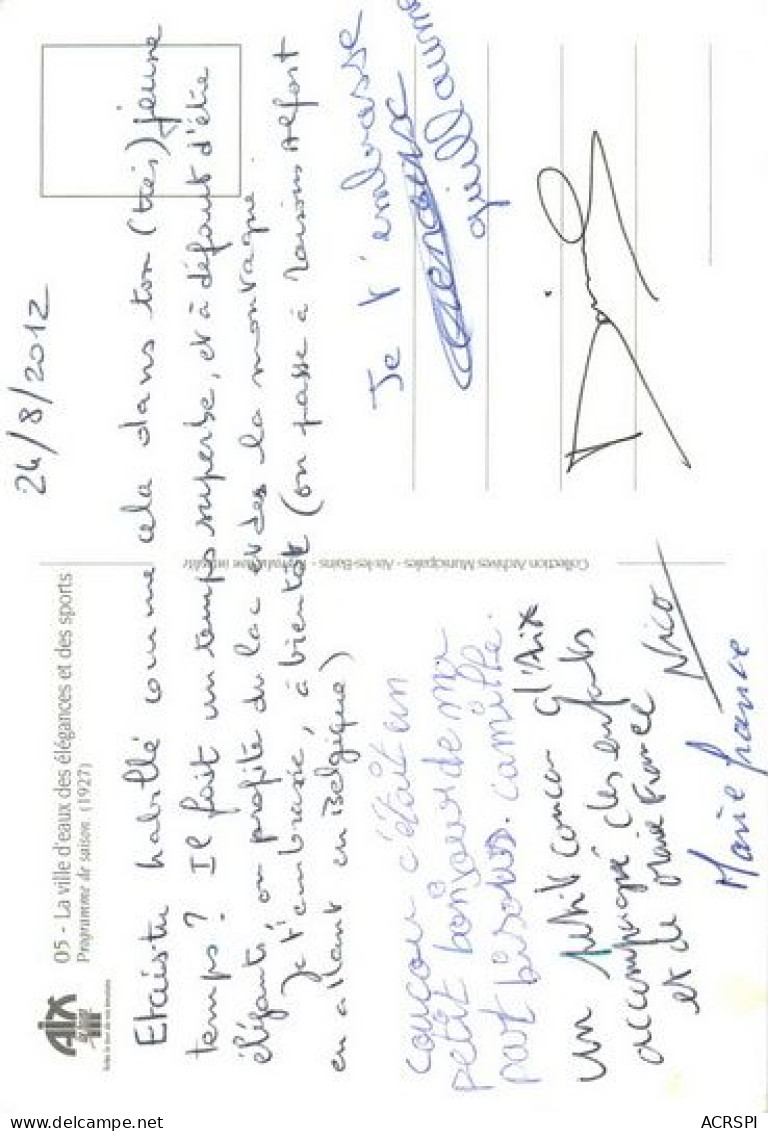 24/8/2012
AIX
les bains
05 - La ville d'eaux des élégances et des sports
Programme de saison (1927)
Etais-tu habillé comme cela dans ton (très) jeune
temps ? Il fait un temps superbe, et à défaut d'être
élégants, on profite du lac et des la montagne.
Je t'embrasse, à bientôt (on passe à Maisons Alfort
en allant en Belgique)
Collection Archives Municipales - Aix-les-Bains - Reproduction interdite
Je t'embrasse
guillaume
coucou c'était un
petit bonjour de ma
part bisous. camille.
un petit coucou d'Aix
accompagné des enfants
et de Marie France
Nico
Marie france
ACRSPI